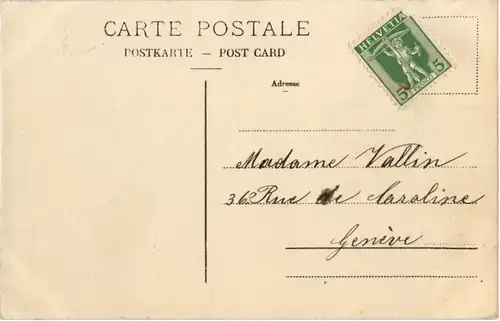 CARTE POSTALE
POSTKARTE — POST CARD
Adresse
HELVETIA
5 FRANCO 5
Madame Vallin
36 Rue de Caroline
Genève